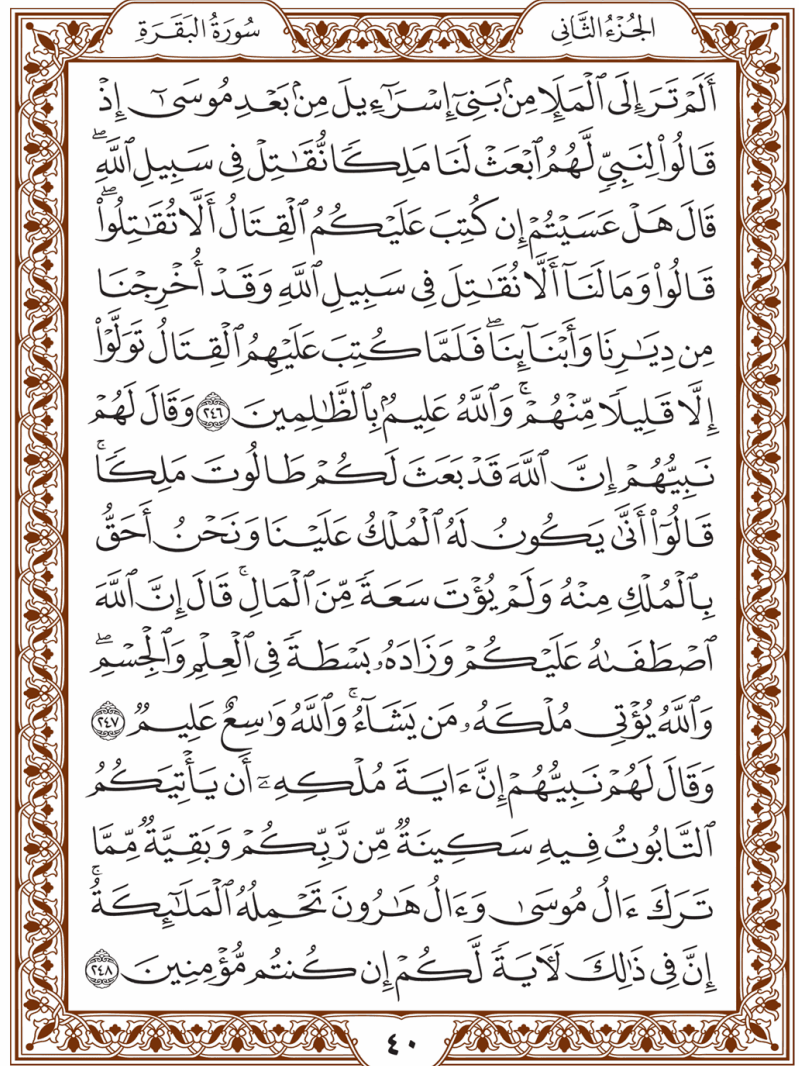 الجُزْءُ الثَّانِي
سُورَةُ البَقَرَةِ
أَلَمۡ تَرَ إِلَى ٱلۡمَلَإِ مِنۢ بَنِيٓ إِسۡرَٰٓءِيلَ مِنۢ بَعۡدِ مُوسَىٰٓ إِذۡ
قَالُواْ لِنَبِيّٖ لَّهُمُ ٱبۡعَثۡ لَنَا مَلِكٗا نُّقَٰتِلۡ فِي سَبِيلِ ٱللَّهِۖ
قَالَ هَلۡ عَسَيۡتُمۡ إِن كُتِبَ عَلَيۡكُمُ ٱلۡقِتَالُ أَلَّا تُقَٰتِلُواْۖ
قَالُواْ وَمَا لَنَآ أَلَّا نُقَٰتِلَ فِي سَبِيلِ ٱللَّهِ وَقَدۡ أُخۡرِجۡنَا
مِن دِيَٰرِنَا وَأَبۡنَآئِنَاۖ فَلَمَّا كُتِبَ عَلَيۡهِمُ ٱلۡقِتَالُ تَوَلَّوۡاْ
إِلَّا قَلِيلٗا مِّنۡهُمۡۚ وَٱللَّهُ عَلِيمُۢ بِٱلظَّٰلِمِينَ ٢٤٦ وَقَالَ لَهُمۡ
نَبِيُّهُمۡ إِنَّ ٱللَّهَ قَدۡ بَعَثَ لَكُمۡ طَالُوتَ مَلِكٗاۚ
قَالُوٓاْ أَنَّىٰ يَكُونُ لَهُ ٱلۡمُلۡكُ عَلَيۡنَا وَنَحۡنُ أَحَقُّ
بِٱلۡمُلۡكِ مِنۡهُ وَلَمۡ يُؤۡتَ سَعَةٗ مِّنَ ٱلۡمَالِۚ قَالَ إِنَّ ٱللَّهَ
ٱصۡطَفَىٰهُ عَلَيۡكُمۡ وَزَادَهُۥ بَسۡطَةٗ فِي ٱلۡعِلۡمِ وَٱلۡجِسۡمِۖ
وَٱللَّهُ يُؤۡتِي مُلۡكَهُۥ مَن يَشَآءُۚ وَٱللَّهُ وَٰسِعٌ عَلِيمٞ ٢٤٧
وَقَالَ لَهُمۡ نَبِيُّهُمۡ إِنَّ ءَايَةَ مُلۡكِهِۦٓ أَن يَأۡتِيَكُمُ
ٱلتَّابُوتُ فِيهِ سَكِينَةٞ مِّن رَّبِّكُمۡ وَبَقِيَّةٞ مِّمَّا
تَرَكَ ءَالُ مُوسَىٰ وَءَالُ هَٰرُونَ تَحۡمِلُهُ ٱلۡمَلَٰٓئِكَةُۚ
إِنَّ فِي ذَٰلِكَ لَأٓيَةٗ لَّكُمۡ إِن كُنتُم مُّؤۡمِنِينَ ٢٤٨
٤٠